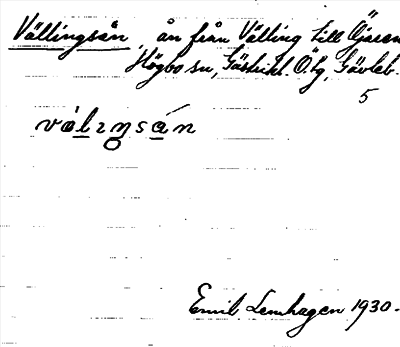 Vällingsån ån från Välling till Öjaren
Högbo sn, Gästrikl. Ö. tg, Gävleb.
5
Emil Lenhagen 1930.